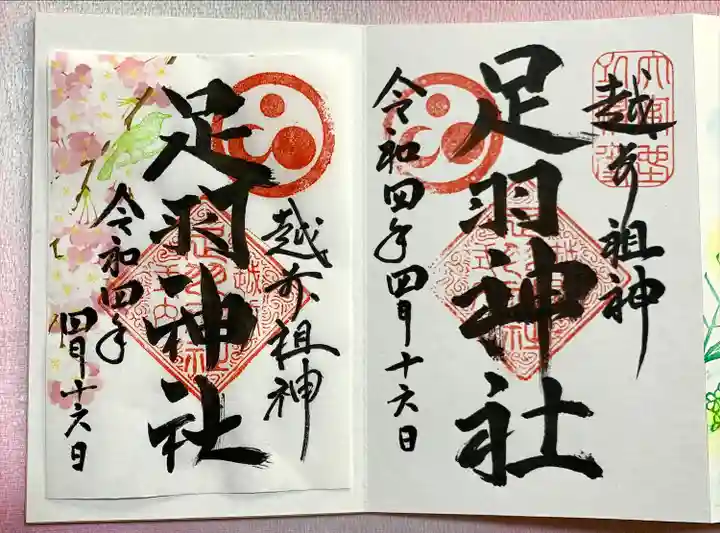 越前祖神
足羽神社
令和四年四月十六日
越前祖神
足羽神社
令和四年
四月十六日